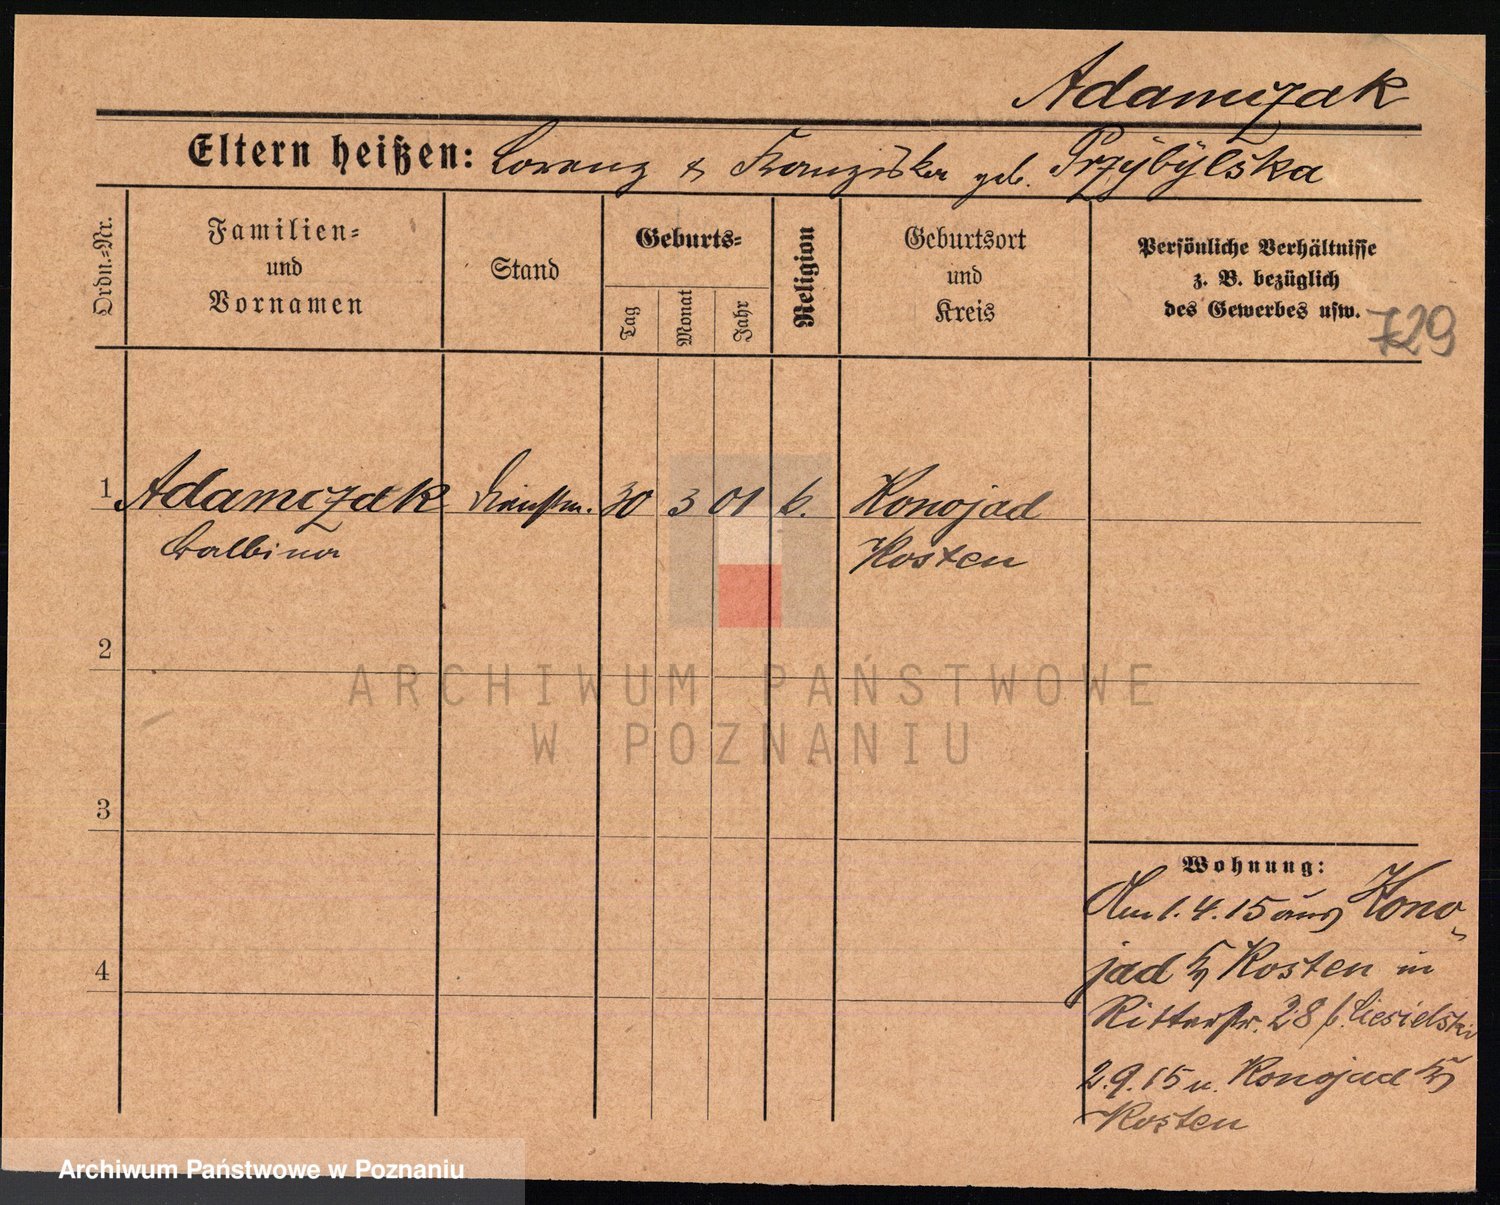 Adamczak
Eltern heißen: Lorenz & Franziska geb. Przybylska
Ordn.=Nr.
Familien=
und
Vornamen
Stand
Geburts=
Tag
Monat
Jahr
Religion
Geburtsort
und
Kreis
Persönliche Verhältnisse
z. B. bezüglich
des Gewerbes usw.
729
1 Adamczak Dienstm. 30 3 01 k. Konojad
Balbina Kosten
2
3
4
Wohnung:
Am 1.4.15 aus Kono-
jad Kr. Kosten in
Ritterstr. 28 b. Ciesielski
2.9.15 n. Konojad Kr.
Kosten
ARCHIWUM PAŃSTWOWE
W POZNANIU
Archiwum Państwowe w Poznaniu